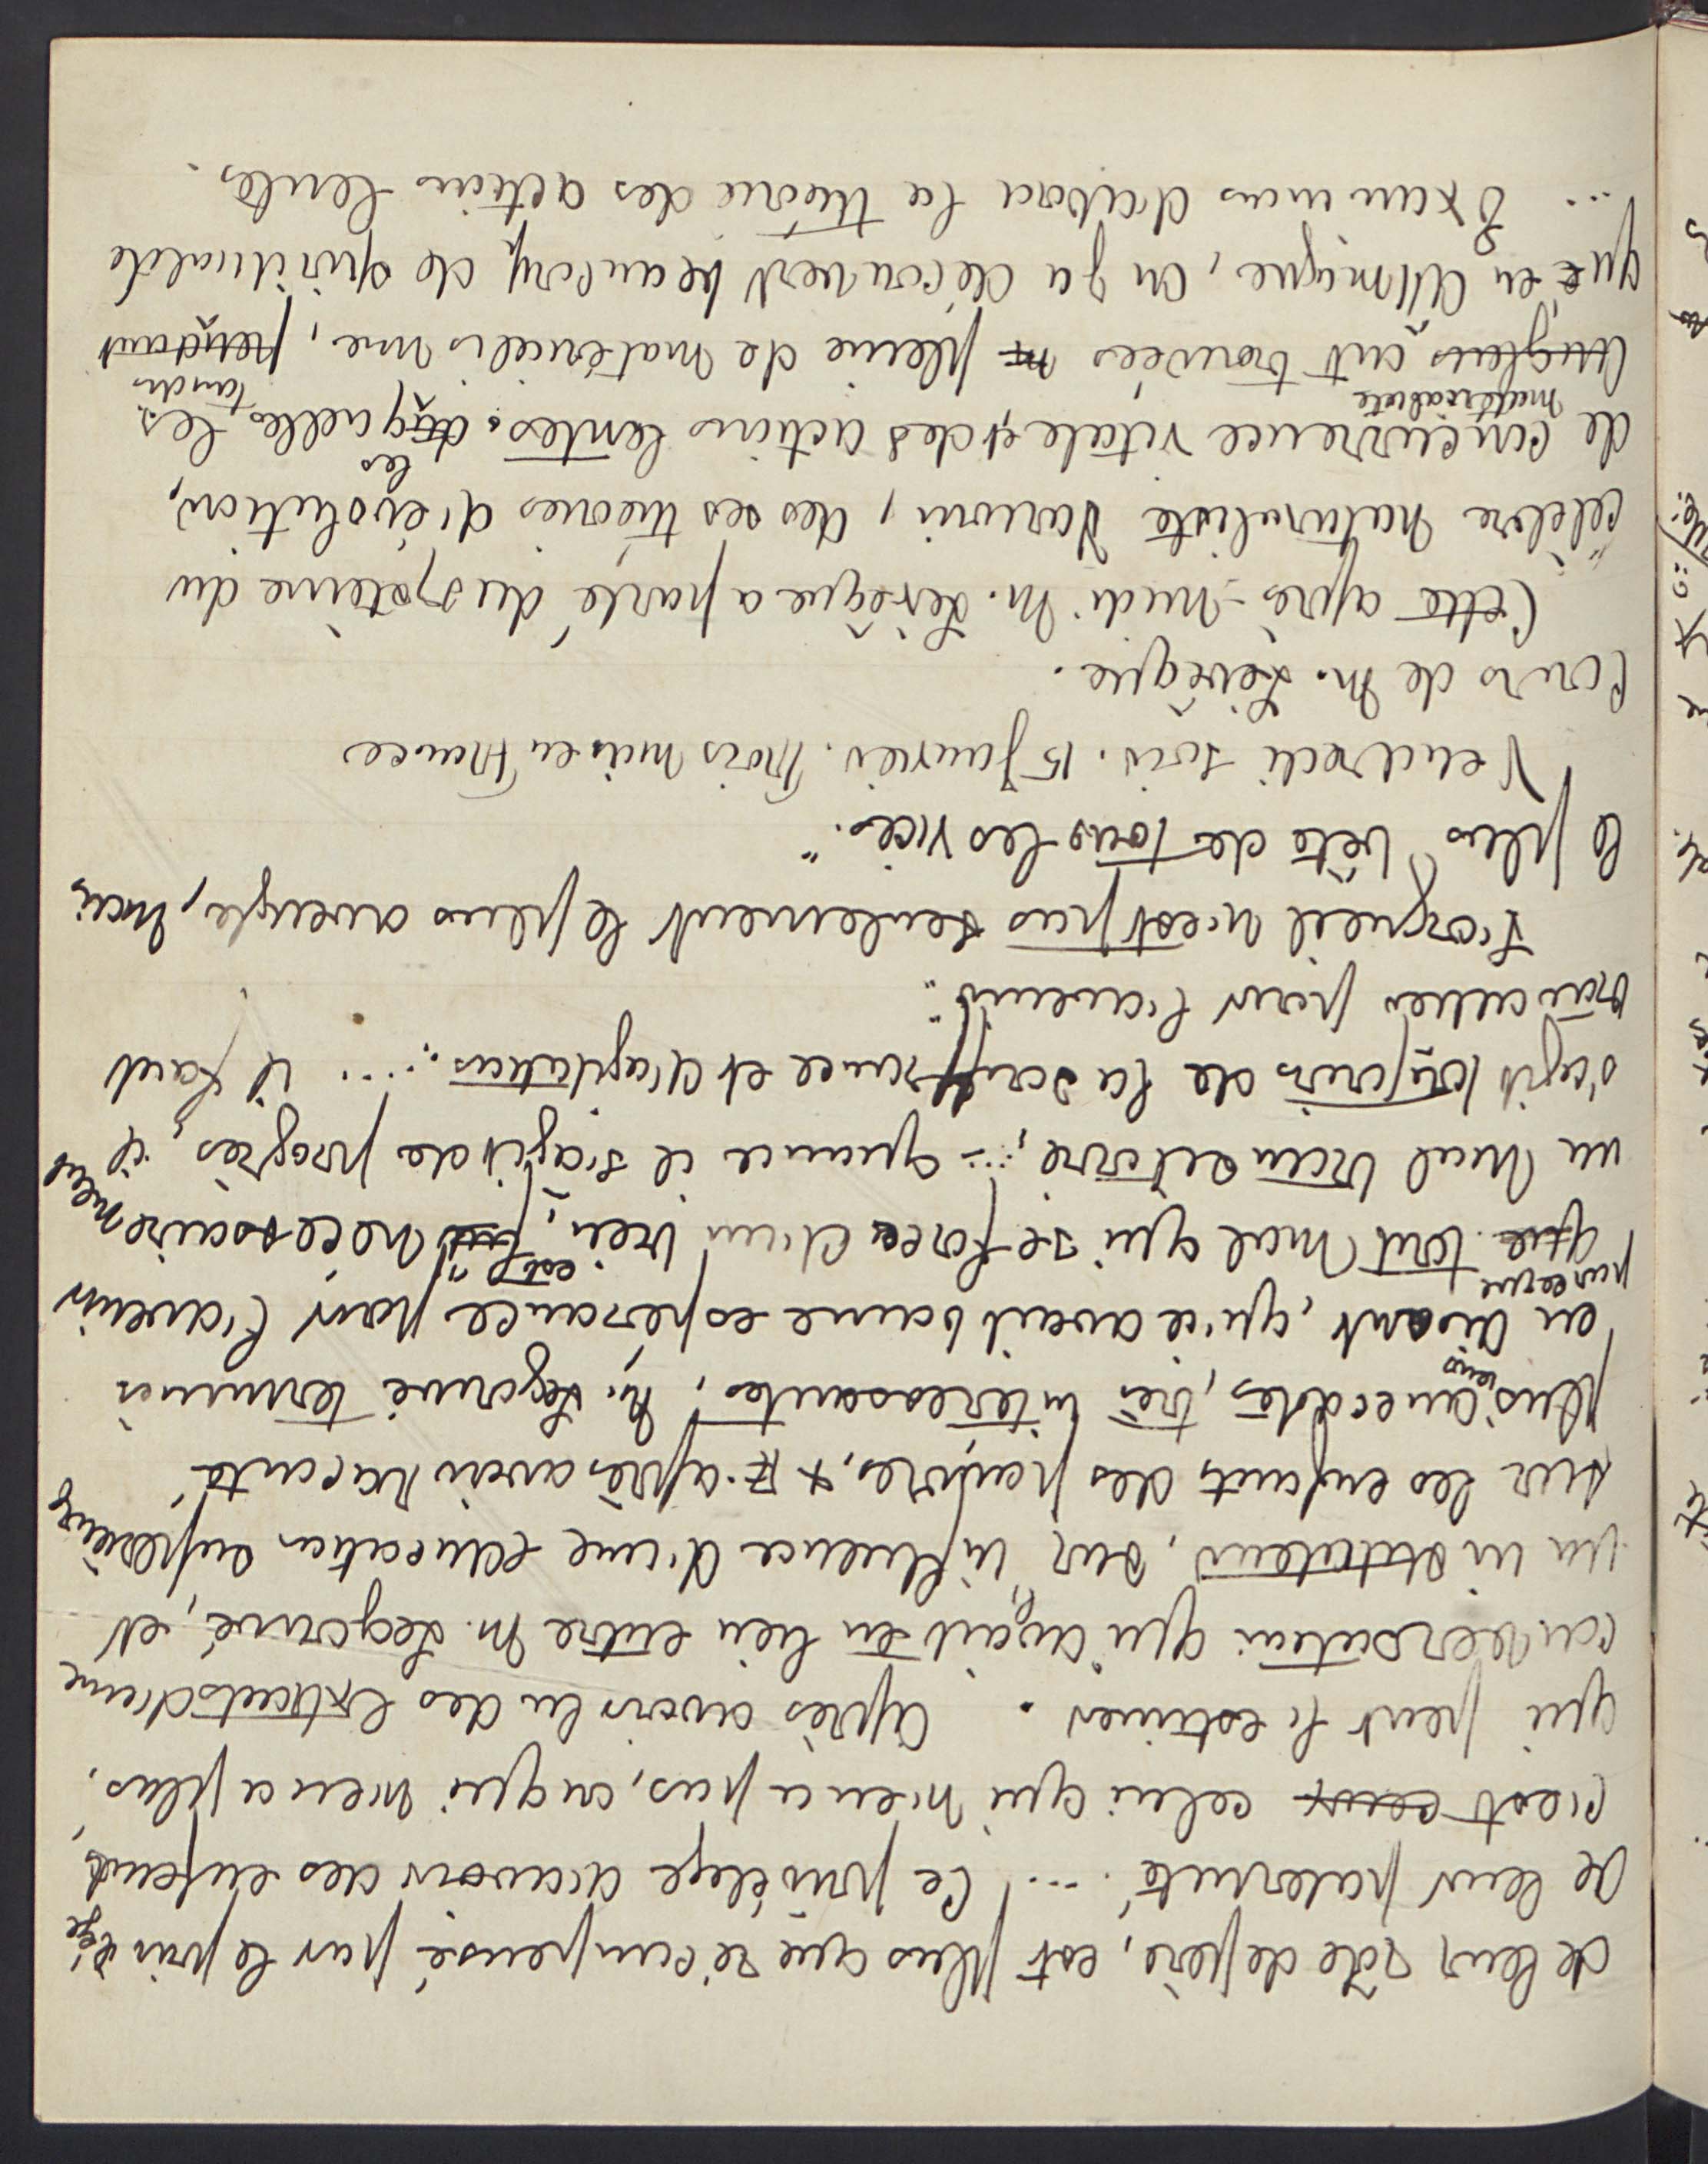 de leur rôle de père, est plus que récompensé par le privilège
de leur paternité. ... Ce privilège d'avoir des enfants,
c'est ceux celui qui n'en a pas, ou qui n'en a plus,
qui peut l'estimer. Après avoir lu des Extraits d'une
conversation qui avait eu lieu entre M. Legouvé, et
un instituteur, sur l'influence d'une education supérieure
sur les enfants des pauvres, & après avoir raconté
plusieurs anecdotes, très intéressantes, M. Legouvé termina
en disant, qu'il avait bonne espérance pour l'avenir
parceque que tout mal qui se force d'un bien, est fut nécessairement
un mal bien ...; quand il s'agit de progrès, il
s'agit toujours de la souffrance et d'agitation: .... il faut
travailler pour l'avenir."
L'orgueil n'est pas seulement le plus aveugle, mais
le plus bête de tous les vices."
Vendredi soir. 15 Janvier. Trois mois en France
Cours de M. Levêque.
Cette après-midi M. Levêque a parlé du système du
célèbre naturaliste Darwin, des ses théories d'évolution,
de concurrence vitale et des actions lentes. dans les quelles les
Anglais matérialiste ont trouvées m pleine de matérialisme, pendant tandis
qu'en Allmagne, on y a découvert beaucoup de spiritualité
... Examinons d'abord la théorie des action lentes.